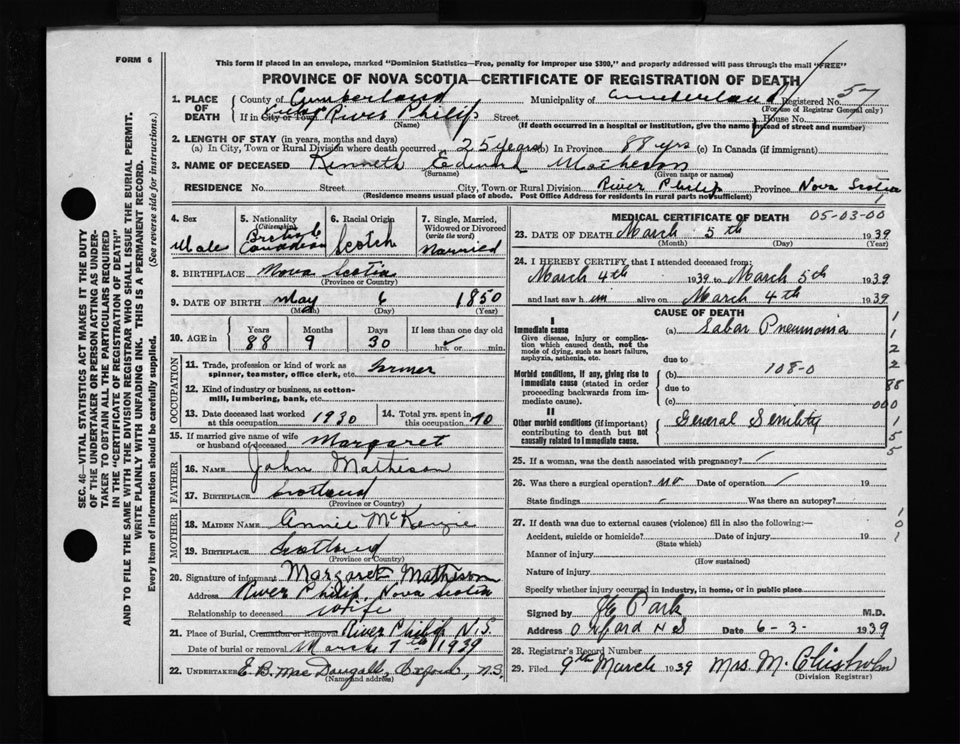 FORM 6
This form if placed in an envelope, marked "Dominion Statistics—Free, penalty for improper use $300," and properly addressed will pass through the mail "FREE"
PROVINCE OF NOVA SCOTIA—CERTIFICATE OF REGISTRATION OF DEATH
1. PLACE OF DEATH { County of Cumberland Municipality of Cumberland Registered No. 57
(For use of Registrar General only)
If in City or Town River Philip Street House No.
(Name) (If death occurred in a hospital or institution, give the name instead of street and number)
2. LENGTH OF STAY (in years, months and days)
(a) In City, Town or Rural Division where death occurred 25 years (b) In Province 88 yrs (c) In Canada (if immigrant)
3. NAME OF DECEASED Kenneth Edward Matheson
(Surname) (Given name or names)
RESIDENCE No. Street City, Town or Rural Division River Philip Province Nova Scotia
(Residence means usual place of abode. Post Office Address for residents in rural parts not sufficient)
4. Sex Male
5. Nationality (Citizenship) British Canadian
6. Racial Origin Scotch
7. Single, Married, Widowed or Divorced (write the word) Married
8. BIRTHPLACE Nova Scotia
(Province or Country)
9. DATE OF BIRTH May 6 1850
(Month) (Day) (Year)
10. AGE in Years 88 Months 9 Days 30 If less than one day old hrs. or min.
OCCUPATION
11. Trade, profession or kind of work as spinner, teamster, office clerk, etc. farmer
12. Kind of industry or business, as cotton-mill, lumbering, bank, etc.
13. Date deceased last worked at this occupation 1930
14. Total yrs. spent in this occupation 70
15. If married give name of wife or husband of deceased Margaret
FATHER
16. NAME John Matheson
17. BIRTHPLACE Scotland
(Province or Country)
MOTHER
18. MAIDEN NAME Annie McKenzie
19. BIRTHPLACE Scotland
(Province or Country)
20. Signature of informant Margaret Matheson
Address River Philip, Nova Scotia
Relationship to deceased Wife
21. Place of Burial, Cremation or Removal River Philip N.S.
Date of burial or removal March 7th 1939
22. UNDERTAKER E. B. MacDougall, Oxford, N.S.
(Name and address)
MEDICAL CERTIFICATE OF DEATH 05-03-00
23. DATE OF DEATH March 5th 1939
(Month) (Day) (Year)
24. I HEREBY CERTIFY, that I attended deceased from:
March 4th 1939 to March 5th 1939
and last saw him alive on March 4th 1939
CAUSE OF DEATH
I
Immediate cause
Give disease, injury or complication which caused death, not the mode of dying, such as heart failure, asphyxia, asthenia, etc.
(a) Lobar Pneumonia
due to
Morbid conditions, if any, giving rise to immediate cause (stated in order proceeding backwards from immediate cause).
(b) 108-0
due to
(c)
II
Other morbid conditions (if important) contributing to death but not causally related to immediate cause.
General Senility
1
1
2
2
88
000
1
5
5
25. If a woman, was the death associated with pregnancy?
26. Was there a surgical operation? no Date of operation 19
State findings Was there an autopsy?
27. If death was due to external causes (violence) fill in also the following:—
Accident, suicide or homicide? Date of injury 19
(State which)
Manner of injury
(How sustained)
Nature of injury
Specify whether injury occurred in industry, in home, or in public place
1
0
1
Signed by Park M.D.
Address Oxford N S Date 6-3- 1939
28. Registrar's Record Number
29. Filed 9th March 1939 Mrs. M. Chisholm
(Division Registrar)
SEC. 46—VITAL STATISTICS ACT MAKES IT THE DUTY
OF THE UNDERTAKER OR PERSON ACTING AS UNDERTAKER TO OBTAIN ALL THE PARTICULARS REQUIRED
IN THE "CERTIFICATE OF REGISTRATION OF DEATH"
AND TO FILE THE SAME WITH THE DIVISION REGISTRAR WHO SHALL ISSUE THE BURIAL PERMIT.
WRITE PLAINLY WITH UNFADING INK. THIS IS A PERMANENT RECORD.
Every item of information should be carefully supplied. (See reverse side for instructions.)